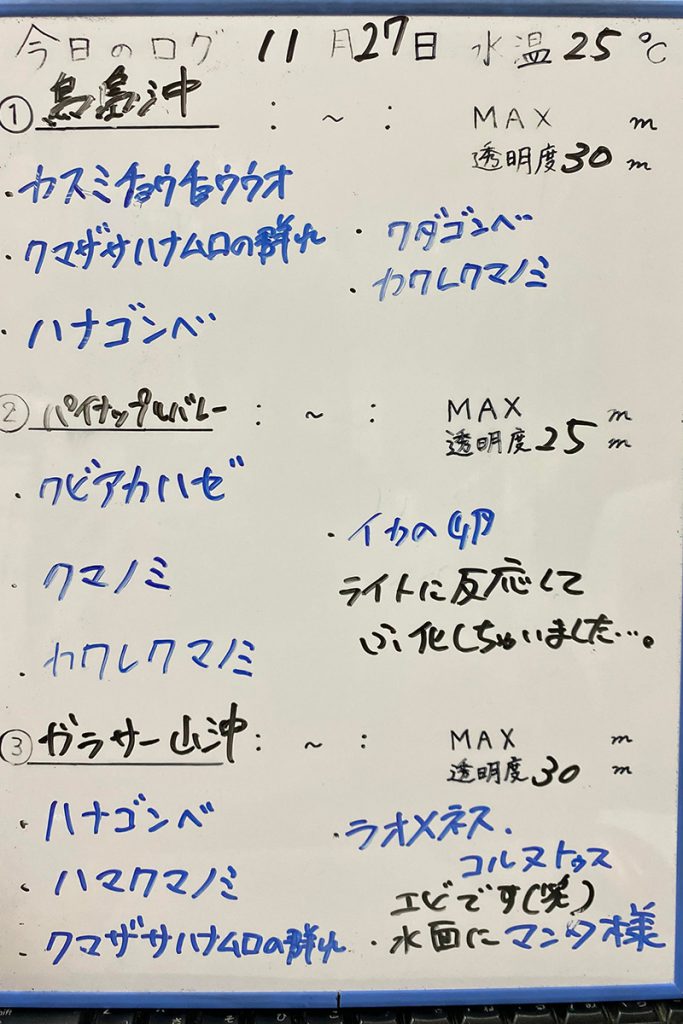 今日のログ 11月27日 水温25℃
① 鳥島沖 : ~ : MAX m
透明度30m
・カスミチョウチョウウオ
・クマザサハナムロの群れ
・ハナゴンベ
・クダゴンベ
・カクレクマノミ
② パイナップルバレー : ~ : MAX m
透明度25m
・クビアカハゼ
・クマノミ
・カクレクマノミ
・イカの卵
ライトに反応して
ふ化しちゃいました…。
③ ガラサー山沖 : ~ : MAX m
透明度30m
・ハナゴンベ
・ハマクマノミ
・クマザサハナムロの群れ
・ラオメネス.
コルヌトゥス
エビです(笑)
・水面にマンタ様